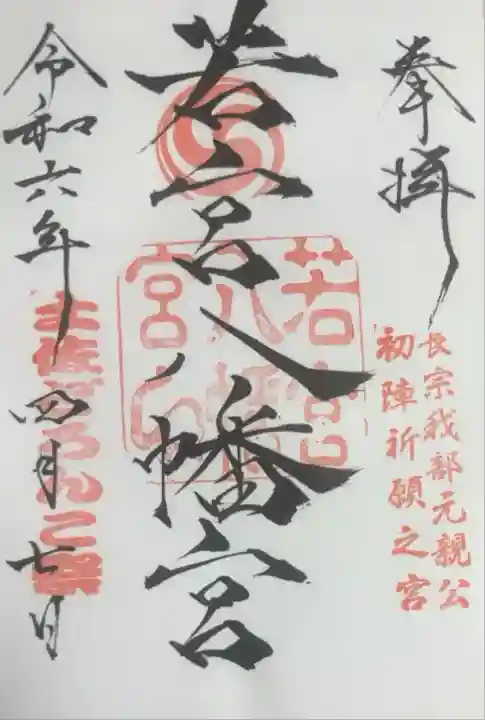 奉拝
長宗我部元親公
初陣祈願之宮
若宮八幡宮
若宮八幡宮印
令和六年四月七日
土佐どろんこ祭